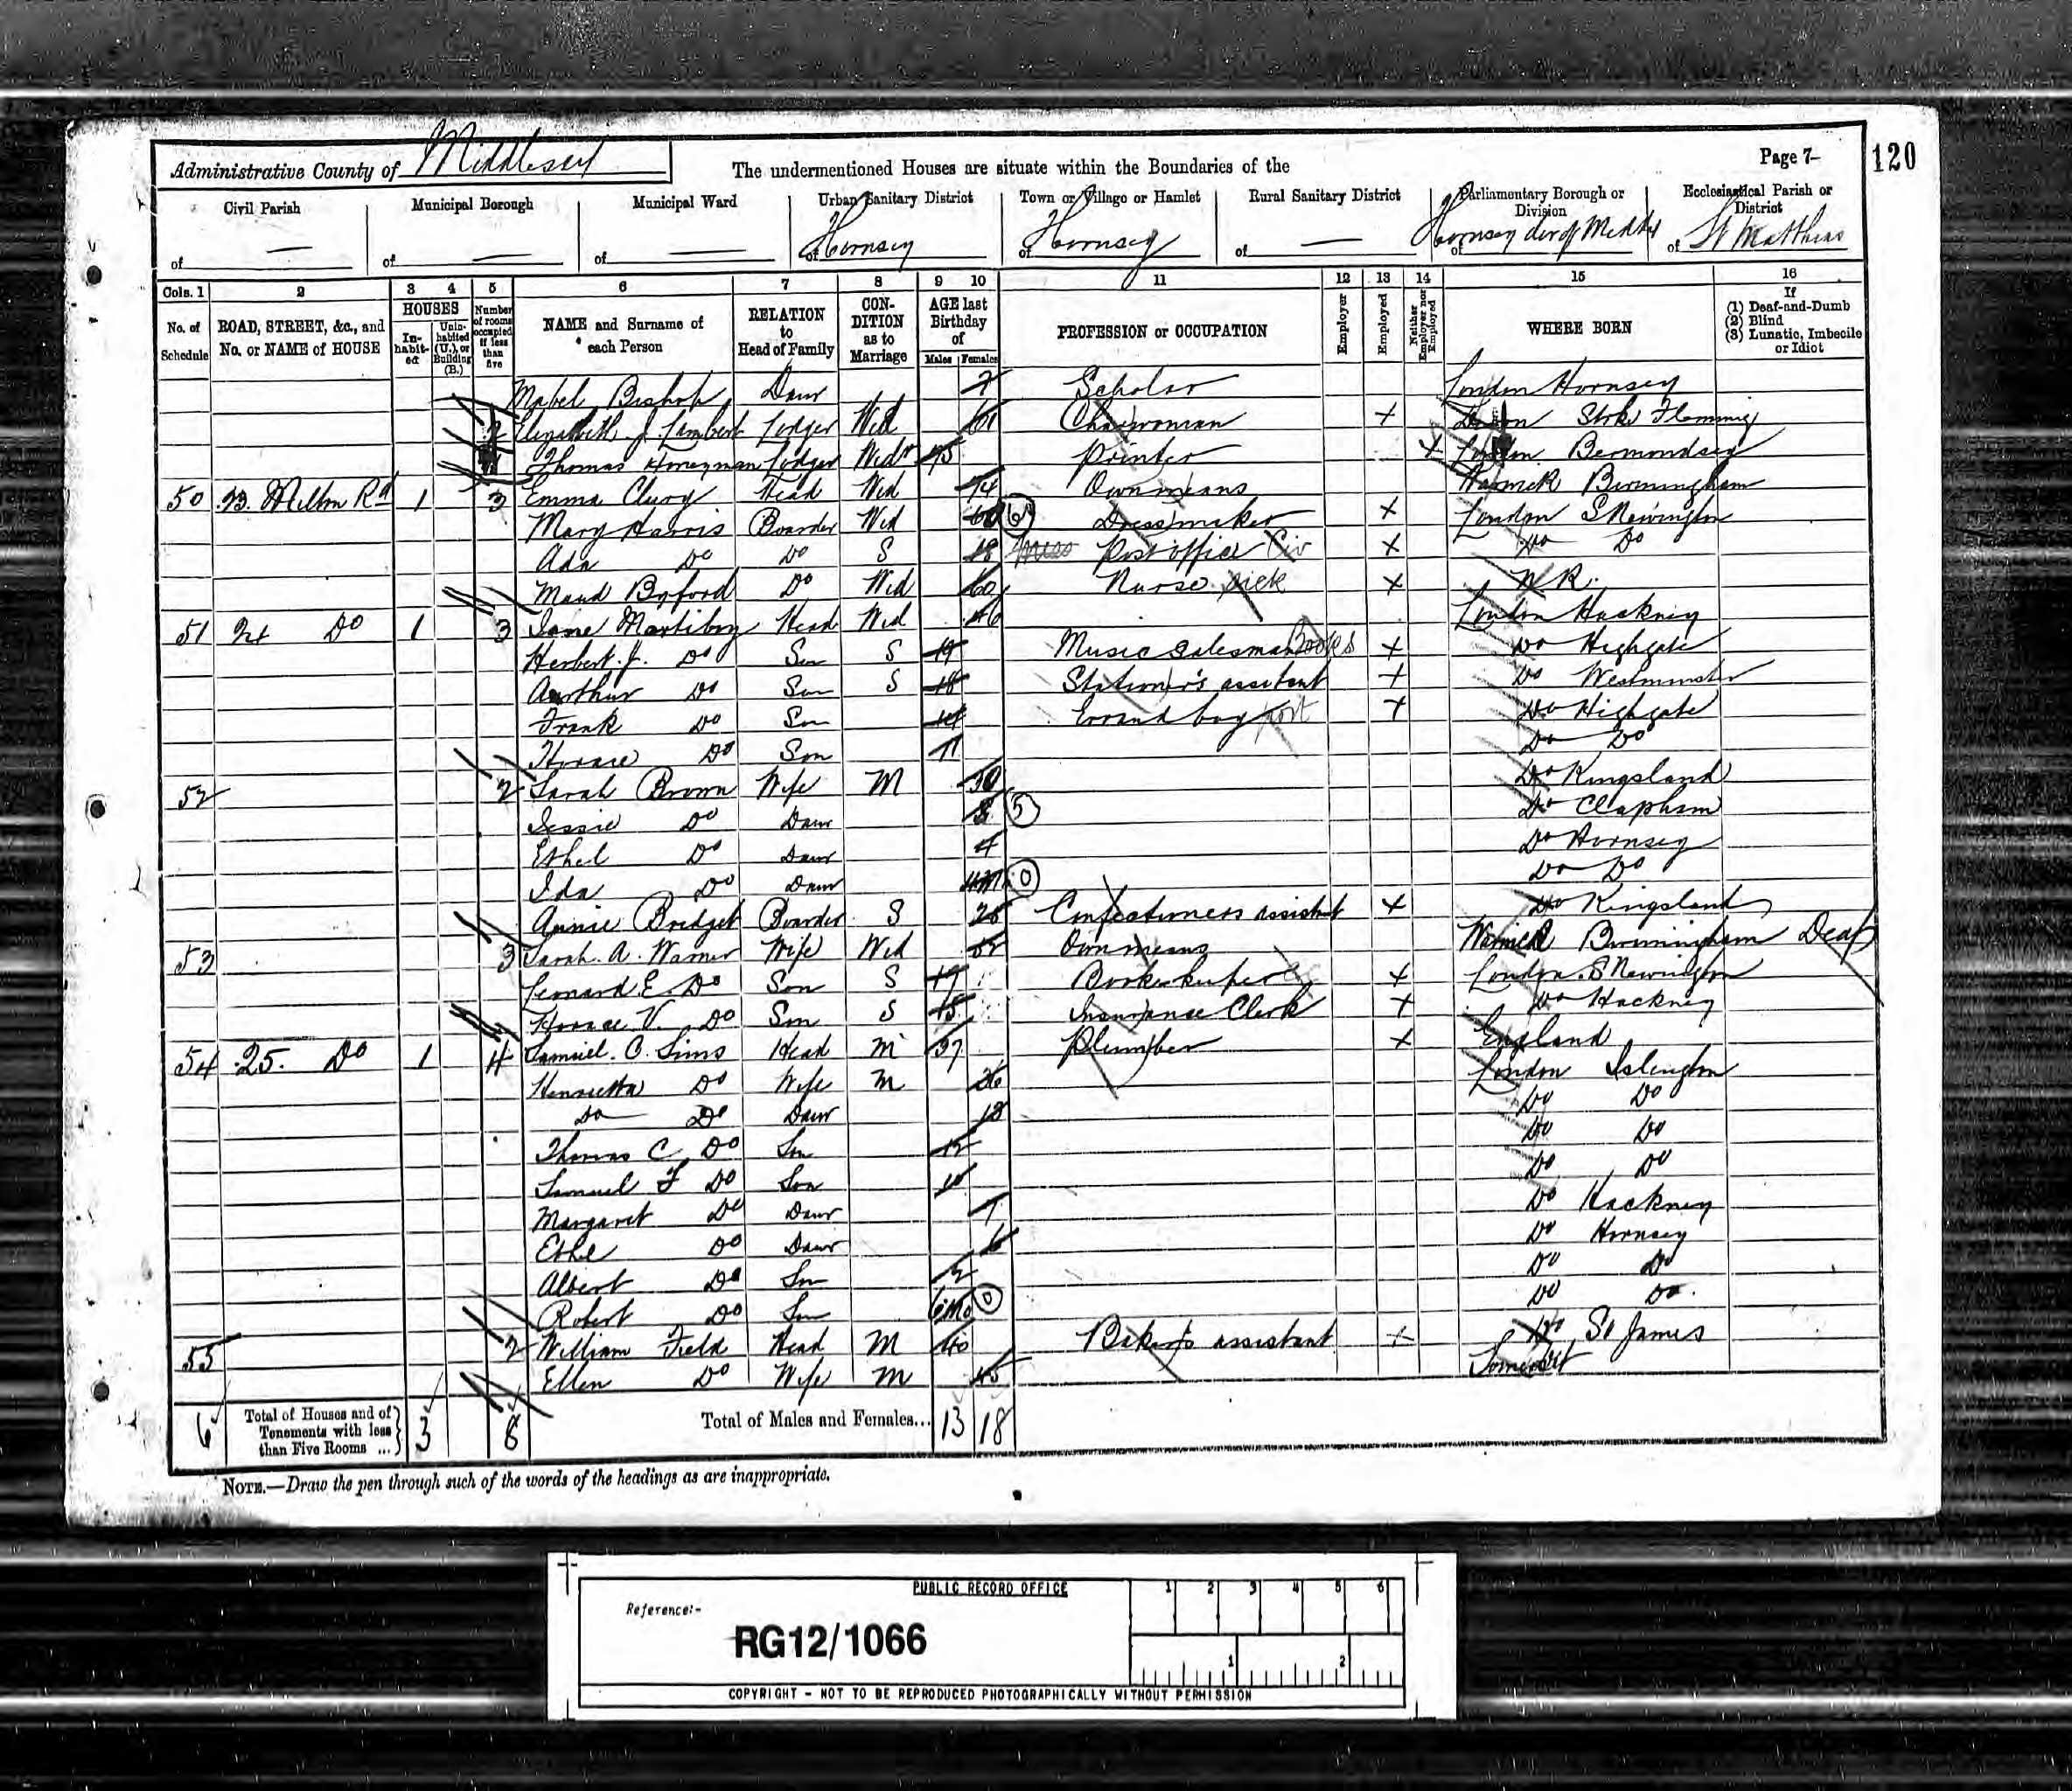 Administrative County of Middlesex
The undermentioned Houses are situate within the Boundaries of the
Page 7
120
Civil Parish Municipal Borough Municipal Ward Urban Sanitary District Town or Village or Hamlet Rural Sanitary District Parliamentary Borough or Division Ecclesiastical Parish or District
of — of — of — of Hornsey of Hornsey of — of Hornsey div of Middx of St Matthias
Cols. 1 2 3 4 5 6 7 8 9 10 11 12 13 14 15 16
No. of Schedule ROAD, STREET, &c., and No. or NAME of HOUSE HOUSES Inhabited Uninhabited (U.), or Building (B.) Number of rooms occupied if less than five NAME and Surname of each Person RELATION to Head of Family CONDITION as to Marriage AGE last Birthday of Males Females PROFESSION or OCCUPATION Employer Employed Neither Employer nor Employed WHERE BORN If (1) Deaf-and-Dumb (2) Blind (3) Lunatic, Imbecile or Idiot
Mabel Bishop Daur 7 Scholar London Hornsey
Elizabeth J. Lambert Lodger Wid 61 Charwoman X Devon Stoke Flemming
Thomas Honeyman Lodger Widr 75 Printer X London Bermondsey
50 23. Milton Rd 1 3 Emma Clury Head Wid 74 Own means Warwick Birmingham
Mary Harris Boarder Wid 60 6 Dressmaker X London S Newington
Ada Do Do S 18 Post office Civ X Do Do
Maud Byford Do Wid 60 Nurse sick X N.R.
51 24 Do 1 3 Jane Martiboy Head Wid 46 London Hackney
Herbert. J. Do Son S 19 Music Salesman Books X Do Highgate
Arthur Do Son S 18 Stationer's assistant X Do Westminster
Frank Do Son 14 Errand boy port X Do Highgate
Horace Do Son 11 Do Do
52 2 Sarah Brown Wife M 30 Do Kingsland
Jessie Do Daur 8 5 Do Clapham
Ethel Do Daur 4 Do Hornsey
Ida Do Daur 0 Do Do
Annie Bridget Boarder S 26 Confectioners assistant X Do Kingsland
53 3 Sarah. A. Warner Wife Wid 52 Own means Warwick Birmingham Deaf
Leonard E. Do Son S 19 Bookkeeper X London. S Newington
Horace V. Do Son S 15 Insurance Clerk X Do Hackney
54 25. Do 1 4 Samuel. C. Sims Head M 37 Plumber X England
Henrietta Do Wife M 36 London Islington
Do Do Daur 13 Do Do
Thomas C Do Son 12 Do Do
Samuel F Do Son 10 Do Do
Margaret Do Daur 7 Do Hackney
Ethel Do Daur 6 Do Hornsey
Albert Do Son 2 Do Do
Robert Do Son 6mo 0 Do Do.
55 2 William Field Head M 40 Baker's assistant X Do St James
Ellen Do Wife M 45 Somerset
6 Total of Houses and of Tenements with less than Five Rooms ... 3 8 Total of Males and Females... 13 18
NOTE.—Draw the pen through such of the words of the headings as are inappropriate.
PUBLIC RECORD OFFICE
1 2 3 4 5 6
Reference:-
RG12/1066
1 2
COPYRIGHT - NOT TO BE REPRODUCED PHOTOGRAPHICALLY WITHOUT PERMISSION